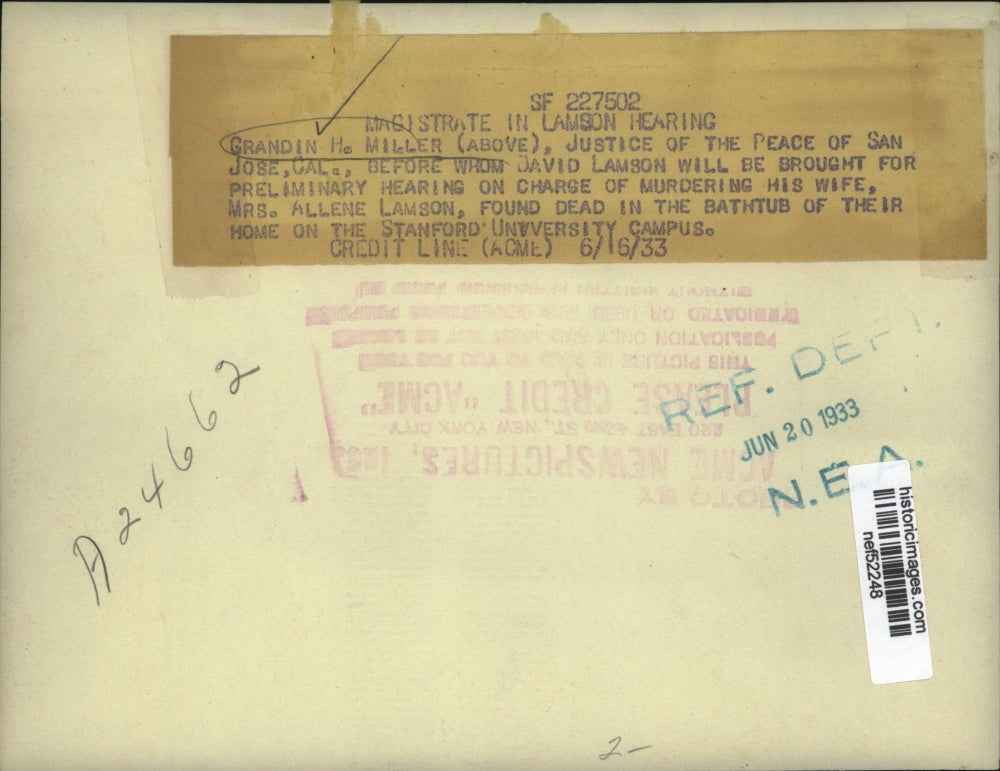 SF 227502
MAGISTRATE IN LAMSON HEARING
GRANDIN H. MILLER (ABOVE), JUSTICE OF THE PEACE OF SAN
JOSE, CAL., BEFORE WHOM DAVID LAMSON WILL BE BROUGHT FOR
PRELIMINARY HEARING ON CHARGE OF MURDERING HIS WIFE,
MRS. ALLENE LAMSON, FOUND DEAD IN THE BATHTUB OF THEIR
HOME ON THE STANFORD UNIVERSITY CAMPUS.
CREDIT LINE (ACME) 6/16/33
A24662
REF. DEPT.
JUN 20 1933
N.E.A.
PHOTO BY
ACME NEWSPICTURES, INC.
220 EAST 42ND ST., NEW YORK CITY
PLEASE CREDIT "ACME"
THIS PICTURE IS SOLD TO YOU FOR YOUR
PUBLICATION ONLY AND MUST NOT BE
SYNDICATED OR USED FOR ADVERTISING PURPOSES
WITHOUT WRITTEN PERMISSION
historicimages.com
nef52248
2-